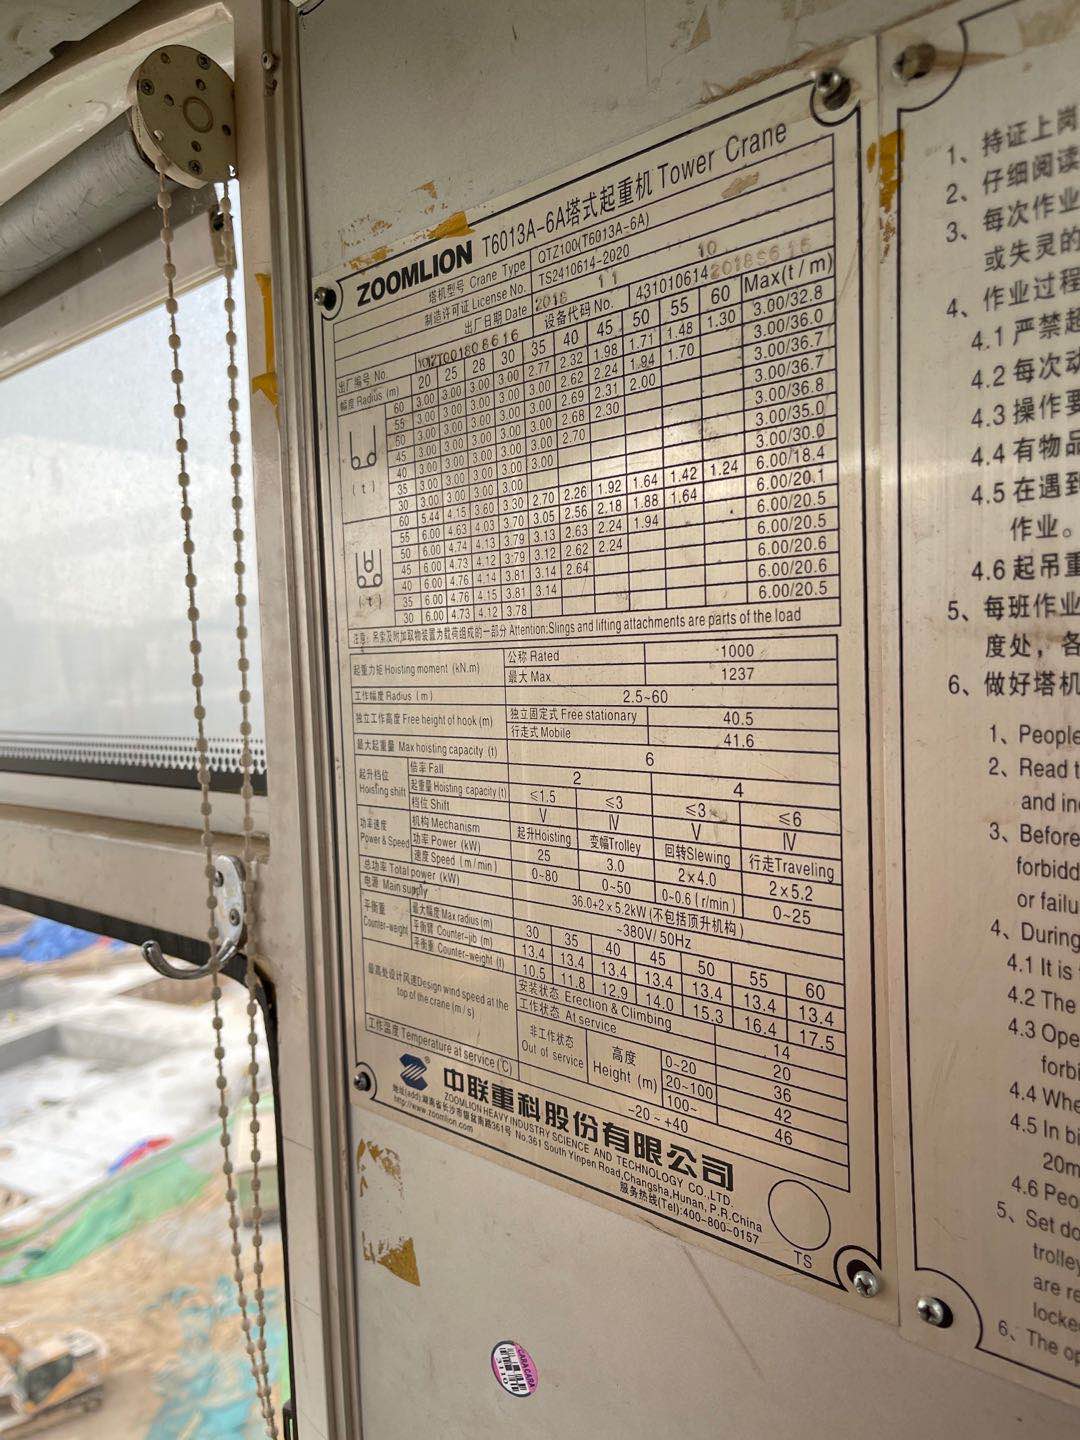 ZOOMLION T6013A-6A塔式起重机 Tower Crane
塔机型号 Crane Type QTZ100(T6013A-6A)
制造许可证 License No. TS2410614-2020
出厂日期 Date 2018 11 10
出厂编号 No. 设备代码 No. 431010614
幅度 Radius (m) 20 25 28 30 35 40 45 50 55 60 Max(t/m)
(t)
60 3.00 3.00 3.00 3.00 2.77 2.32 1.98 1.71 1.48 1.30 3.00/32.8
55 3.00 3.00 3.00 3.00 3.00 2.62 2.24 1.94 1.70 3.00/36.0
3.00 3.00 3.00 3.00 3.00 2.69 2.31 2.00 3.00/36.7
45 3.00 3.00 3.00 3.00 3.00 2.68 2.30 3.00/36.7
40 3.00 3.00 3.00 3.00 3.00 2.70 3.00/36.8
35 3.00 3.00 3.00 3.00 3.00 3.00/35.0
30 3.00 3.00 3.00 3.00 3.00/30.0
(t)
60 5.44 4.15 3.60 3.30 2.70 2.26 1.92 1.64 1.42 1.24 6.00/18.4
55 6.00 4.63 4.03 3.70 3.05 2.56 2.18 1.88 1.64 6.00/20.1
50 6.00 4.74 4.13 3.79 3.13 2.63 2.24 1.94 6.00/20.5
45 6.00 4.73 4.12 3.79 3.12 2.62 2.24 6.00/20.5
40 6.00 4.76 4.14 3.81 3.14 2.64 6.00/20.6
35 6.00 4.76 4.15 3.81 3.14 6.00/20.6
30 6.00 4.73 4.12 3.78 6.00/20.5
注意: 吊索及附加取物装置为载荷组成的一部分 Attention:Slings and lifting attachments are parts of the load
起重力矩 Hoisting moment (kN.m) 公称 Rated 1000
最大 Max 1237
工作幅度 Radius (m) 2.5~60
独立工作高度 Free height of hook (m) 独立固定式 Free stationary 40.5
行走式 Mobile 41.6
最大起重量 Max hoisting capacity (t) 6
起升档位 Hoisting shift 倍率 Fall 2 4
起重量 Hoisting capacity(t) ≤1.5 ≤3 ≤3 ≤6
档位 Shift V IV V IV
功率速度 Power & Speed 机构 Mechanism 起升Hoisting 变幅Trolley 回转Slewing 行走Traveling
功率 Power (kW) 25 3.0 2×4.0 2×5.2
速度 Speed (m/min) 0~80 0~50 0~0.6 (r/min) 0~25
总功率 Total power (kW) 36.0+2×5.2kW (不包括顶升机构)
电源 Main supply ~380V/50Hz
平衡重 Counter-weight 最大幅度 Max radius(m) 30 35 40 45 50 55 60
平衡臂 Counter-jib (m) 13.4 13.4 13.4 13.4 13.4 13.4 13.4
平衡重 Counter-weight (t) 10.5 11.8 12.9 14.0 15.3 16.4 17.5
最高处设计风速Design wind speed at the top of the crane (m/s) 安装状态 Erection & Climbing 14
工作状态 At service 20
非工作状态 Out of service 高度 Height (m) 0~20 36
20~100 42
100~ 46
工作温度 Temperature at service (℃) -20 ~ +40
中联重科股份有限公司
ZOOMLION HEAVY INDUSTRY SCIENCE AND TECHNOLOGY CO.,LTD.
地址(add):湖南省长沙市银盆南路361号 No.361 South Yinpen Road,Changsha,Hunan, P.R.China
http://www.zoomlion.com 服务热线(Tel):400-800-0157
TS
CARA CARA
3110
1、持证上岗
2、仔细阅读
3、每次作业
或失灵的
4、作业过程
4.1 严禁超
4.2 每次动
4.3 操作要
4.4 有物品
4.5 在遇到
作业。
4.6 起吊重
5、每班作业
度处，各
6、做好塔机
1、People
2、Read t
and in
3、Before
forbidd
or failu
4、During
4.1 It is
4.2 The
4.3 Ope
forbi
4.4 Whe
4.5 In bi
20m
4.6 Peo
5、Set do
trolley
are re
locke
6、The op